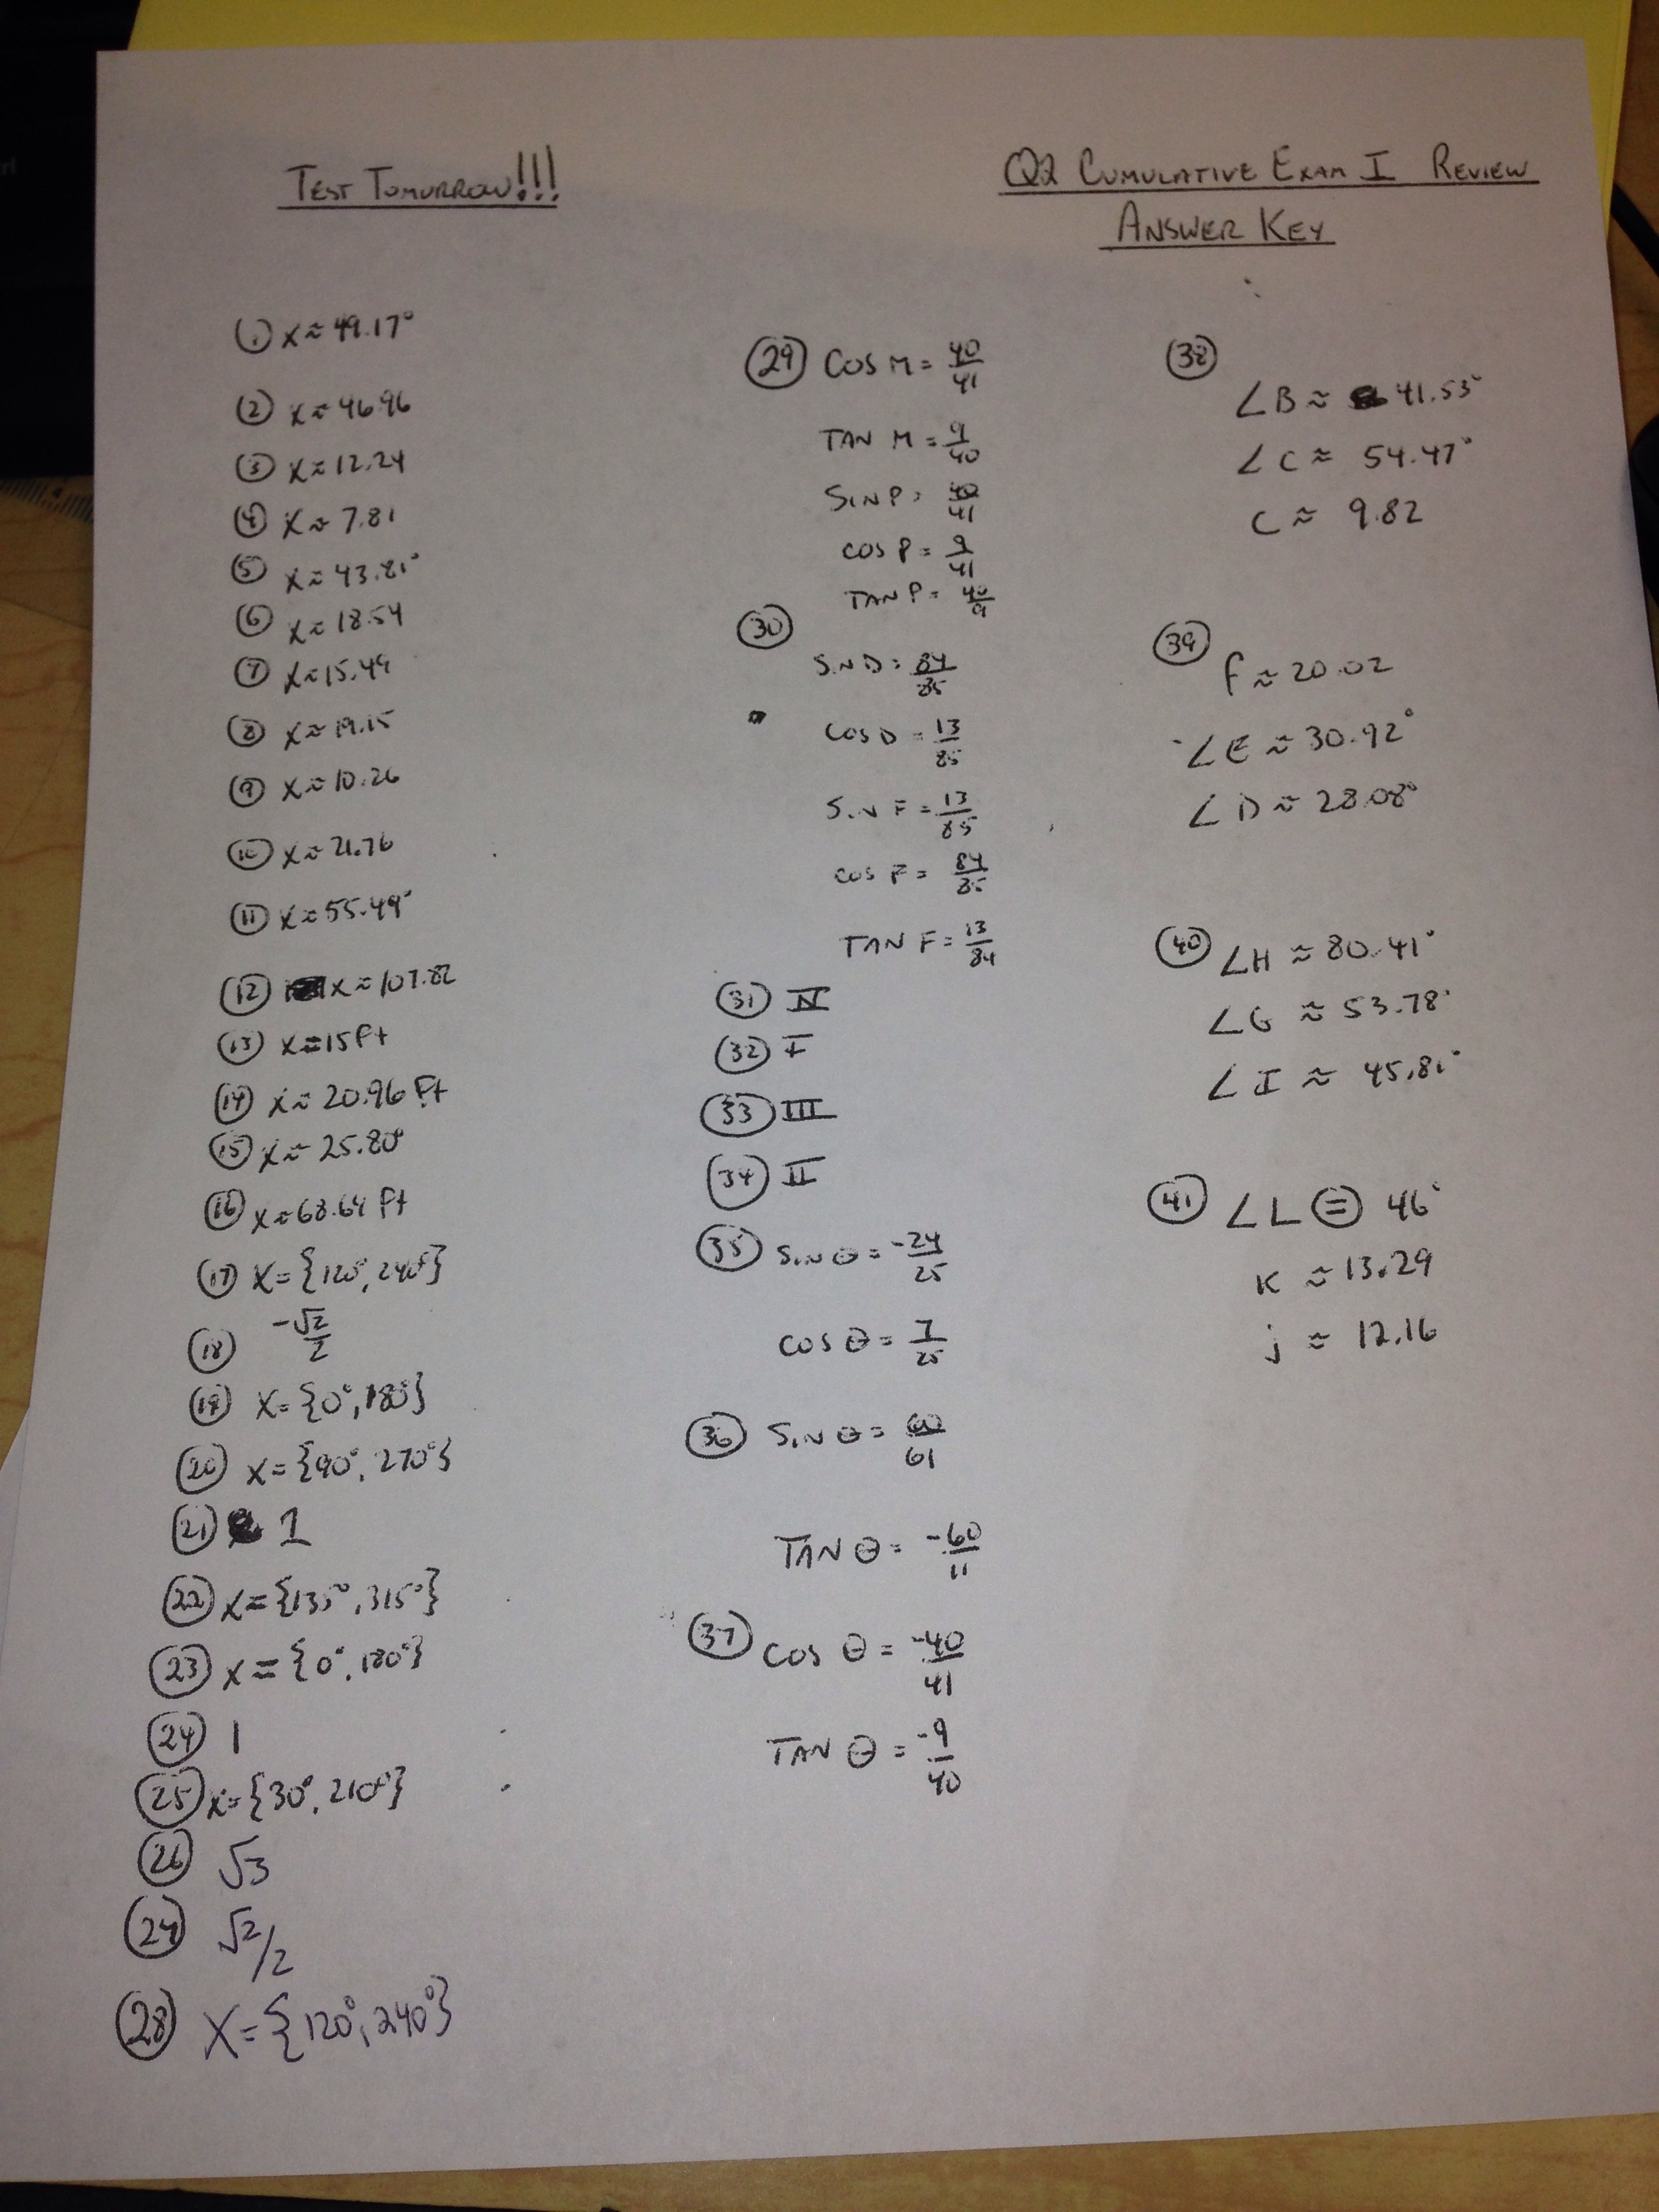 TEST TOMORROW!!!
Q2 CUMULATIVE EXAM I REVIEW
ANSWER KEY
① x ≈ 49.17°
② x ≈ 46.96
③ x ≈ 12.24
④ x ≈ 7.81
⑤ x ≈ 43.81°
⑥ x ≈ 18.54
⑦ x ≈ 15.49
⑧ x ≈ 19.15
⑨ x ≈ 10.26
⑩ x ≈ 21.76
⑪ x ≈ 55.49°
⑫ x ≈ 107.82
⑬ x = 15 ft
⑭ x ≈ 20.96 ft
⑮ x ≈ 25.80°
⑯ x ≈ 68.64 ft
⑰ x = {120°, 240°}
⑱ -√2/2
⑲ x = {0°, 180°}
⑳ x = {90°, 270°}
㉑ 1
㉒ x = {135°, 315°}
㉓ x = {0°, 180°}
㉔ 1
㉕ x = {30°, 210°}
㉖ √3
㉗ √2/2
㉘ x = {120°, 240°}
㉙ COS M = 40/41
TAN M = 9/40
SIN P = 40/41
COS P = 9/41
TAN P = 40/9
㉚
SIN D = 84/85
COS D = 13/85
SIN F = 13/85
COS F = 84/85
TAN F = 13/84
㉛ IV
㉜ I
㉝ III
㉞ II
㉟ SIN θ = -24/25
COS θ = 7/25
㊱ SIN θ = 60/61
TAN θ = -60/11
㊲ COS θ = -40/41
TAN θ = -9/40
㊳
∠B ≈ 41.53°
∠C ≈ 54.47°
C ≈ 9.82
㊴
f ≈ 20.02
∠E ≈ 30.92°
∠D ≈ 28.08°
㊵ ∠H ≈ 80.41°
∠G ≈ 53.78°
∠I ≈ 45.81°
㊶ ∠L = 46°
K ≈ 13.29
j ≈ 12.16